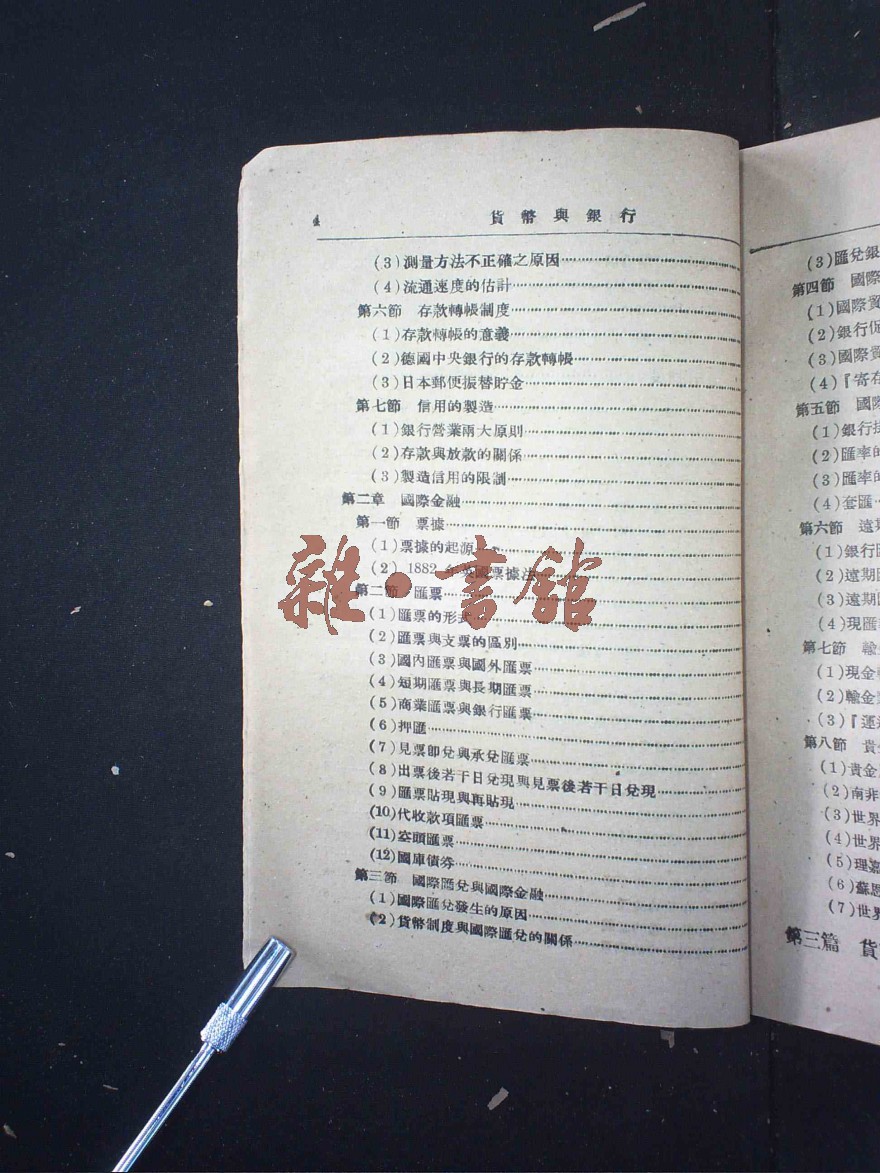 4 貨幣與銀行
(3)測量方法不正確之原因
(4)流通速度的估計
第六節 存款轉帳制度
(1)存款轉帳的意義
(2)德國中央銀行的存款轉帳
(3)日本郵便振替貯金
第七節 信用的製造
(1)銀行營業兩大原則
(2)存款與放款的關係
(3)製造信用的限制
第二章 國際金融
第一節 票據
(1)票據的起源
(2) 1882 年英國票據法
第二節 匯票
(1)匯票的形式
(2)匯票與支票的區別
(3)國內匯票與國外匯票
(4)短期匯票與長期匯票
(5)商業匯票與銀行匯票
(6)押匯
(7)見票卽兌與承兌匯票
(8)出票後若干日兌現與見票後若干日兌現
(9)匯票貼現與再貼現
(10)代收款項匯票
(11)空頭匯票
(12)國庫債券
第三節 國際匯兌與國際金融
(1)國際匯兌發生的原因
(2)貨幣制度與國際匯兌的關係
雜·書館
(3)匯兌銀
第四節 國際
(1)國際貿
(2)銀行促
(3)國際貿
(4)『寄存
第五節 國際
(1)銀行掛
(2)匯率的
(3)匯率的
(4)套匯
第六節 遠期
(1)銀行匯
(2)遠期匯
(3)遠期
(4)現匯
第七節 輸
(1)現金
(2)輸金
(3)『運
第八節 貴
(1)貴金
(2)南非
(3)世界
(4)世界
(5)理嘉
(6)蘇
(7)世界
第三篇 貨